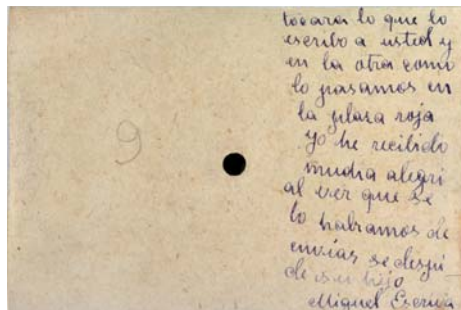 tocara lo que lo
escribo a usted y
en la otra como
lo pasamos en
la plasa roja
9
Yo he recibido
mucha alegri
al ver que se
lo habramos de
enviar se despi
de su hijo
Miguel Escriva